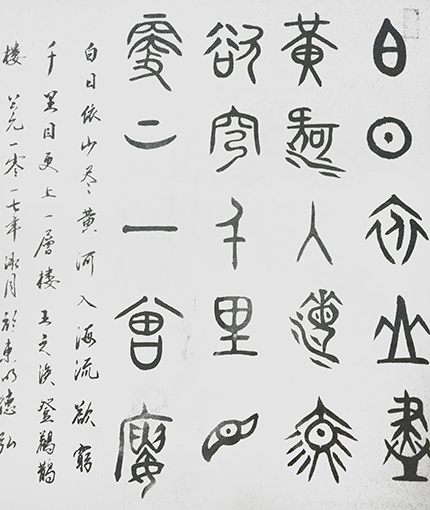 白日依山盡
黃河入海流
欲窮千里目
更上一層樓
白日依山尽黄河入海流欲窮
千里目更上一層楼王之涣登鸛鵲
楼 公元二零一七年 月於東明德弘